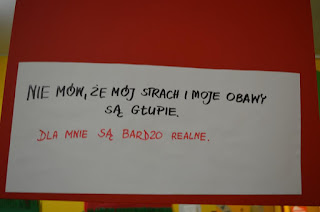 NIE MÓW, ŻE MÓJ STRACH I MOJE OBAWY
SĄ GŁUPIE.
DLA MNIE SĄ BARDZO REALNE.